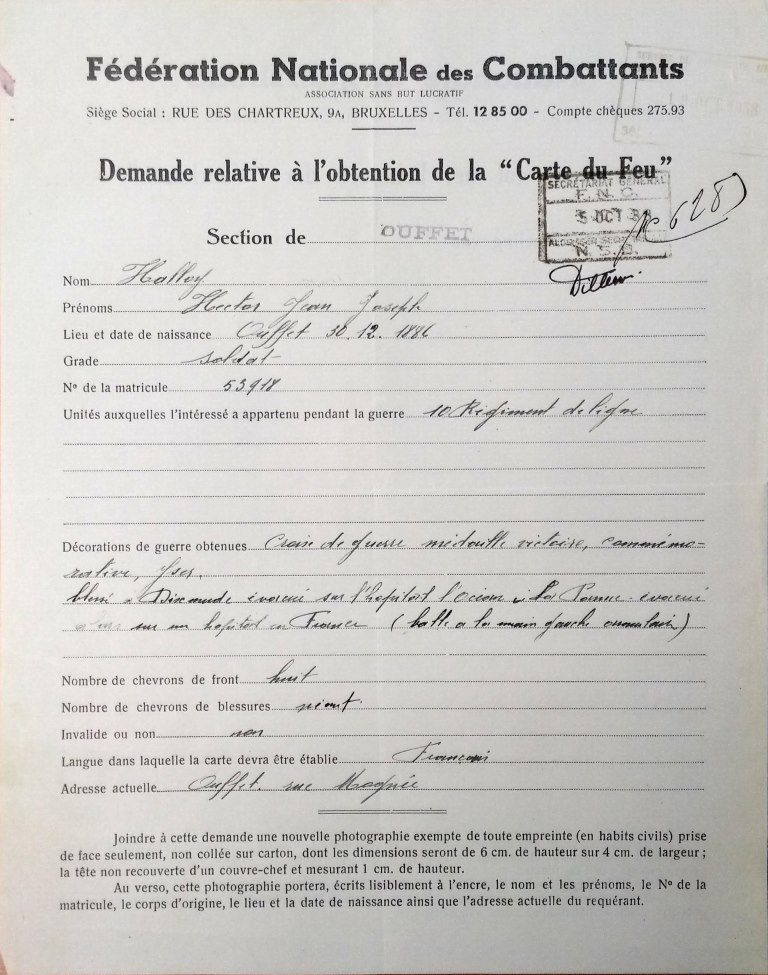 Fédération Nationale des Combattants
ASSOCIATION SANS BUT LUCRATIF
Siège Social : RUE DES CHARTREUX, 9A, BRUXELLES - Tél. 12 85 00 - Compte chèques 275.93
Demande relative à l'obtention de la "Carte du Feu"
SECRÉTARIAT GÉNÉRAL
F.N.C.
5 OCT 3
N.S.B.
No 628
Section de OUFFET
Nom Halloy
Prénoms Hector Jean Joseph
Lieu et date de naissance Ouffet 30.12.1886
Grade soldat
No de la matricule 53918
Unités auxquelles l'intéressé a appartenu pendant la guerre 10 Régiment de ligne
Décorations de guerre obtenues Croix de guerre médaille victoire, commémo-
rative, Yser.
blessé à Dixmude évacué sur l'hopital l'océan La Panne évacué
sur un hopital en France (balle a la main gauche
Nombre de chevrons de front huit
Nombre de chevrons de blessures néant
Invalide ou non non
Langue dans laquelle la carte devra être établie Français
Adresse actuelle Ouffet rue Magnée
Joindre à cette demande une nouvelle photographie exempte de toute empreinte (en habits civils) prise
de face seulement, non collée sur carton, dont les dimensions seront de 6 cm. de hauteur sur 4 cm. de largeur ;
la tête non recouverte d'un couvre-chef et mesurant 1 cm. de hauteur.
Au verso, cette photographie portera, écrits lisiblement à l'encre, le nom et les prénoms, le No de la
matricule, le corps d'origine, le lieu et la date de naissance ainsi que l'adresse actuelle du requérant.